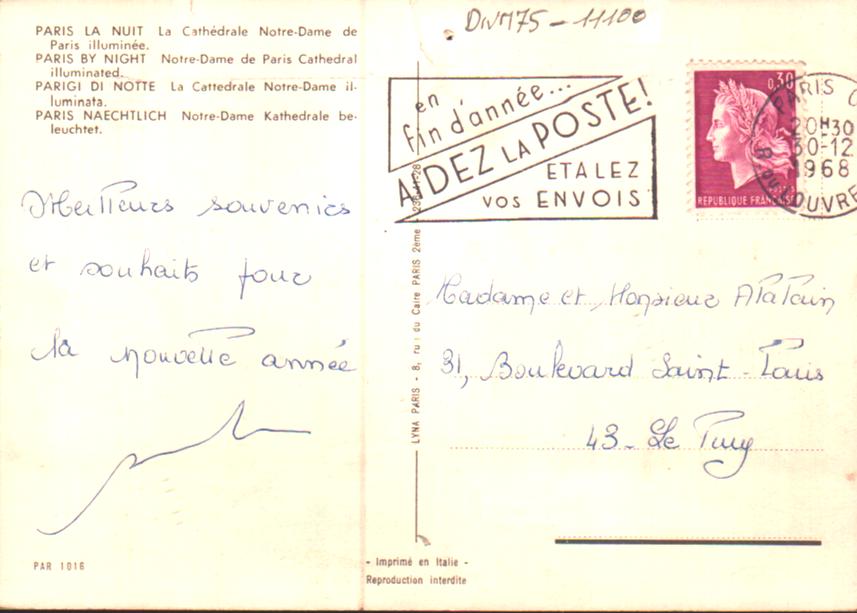 PARIS LA NUIT La Cathédrale Notre-Dame de
Paris illuminée.
PARIS BY NIGHT Notre-Dame de Paris Cathedral
illuminated.
PARIGI DI NOTTE La Cattedrale Notre-Dame il-
luminata.
PARIS NAECHTLICH Notre-Dame Kathedrale be-
leuchtet.
Meilleurs souvenirs
et souhaits pour
la nouvelle année
PAR 1016
DIVM75-11100
en
fin d'année...
AIDEZ LA POSTE!
ETALEZ
VOS ENVOIS
0,30
REPUBLIQUE FRANÇAISE
PARIS
20H30
30-12
1968
R. DU LOUVRE
LYNA PARIS - 8, ru du Caire PARIS 2ème - 236-41-28
Madame et Monsieur
31, Boulevard Saint-Louis
43 - Le Puy
- Imprimé en Italie -
Reproduction interdite